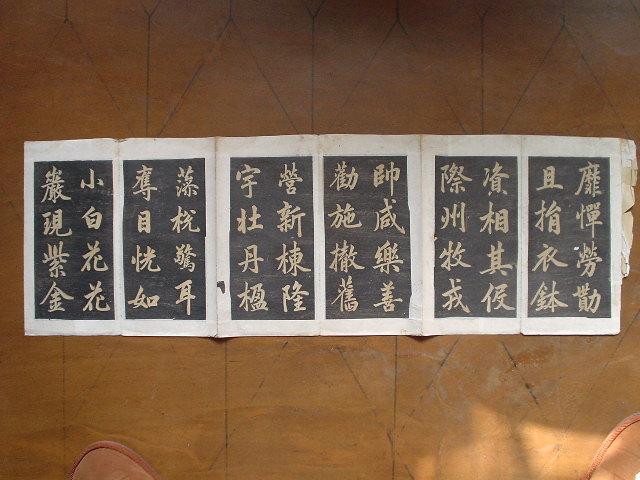 靡憚勞勩
且捐衣鉢
資相其役
際州牧戎
帥咸樂善
勸施撤舊
營新棟隆
宇壮丹楹
藻棁驚耳
奪目恍如
小白花花
巖現紫金